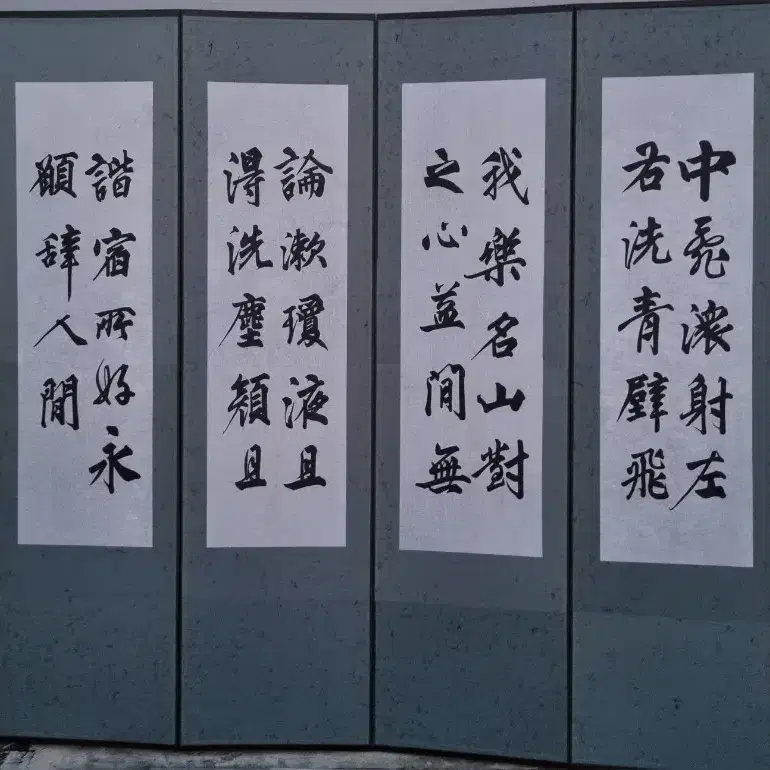 中亂潨射左
右洗青壁飛
我樂名山對
之心益間無
論漱瓊液且
得洗塵顏且
諧宿所好永
願辭人間